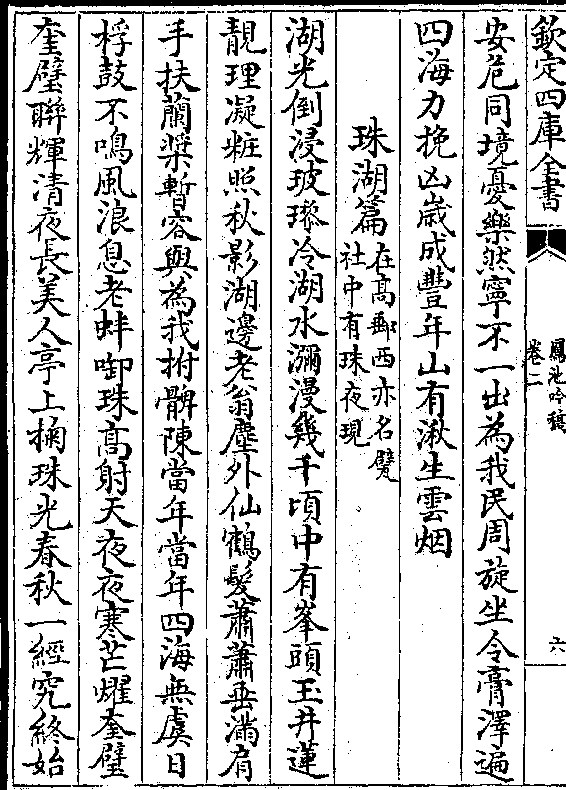 欽定四庫全書
鳳池吟稿
卷二
六
安危同境憂樂然寧不一出為我民周旋坐令膏澤遍
四海力挽凶歲成豐年山有湫生雲烟
珠湖篇在高郵西亦名甓
社中有珠夜現
湖光倒浸玻瓈冷湖水瀰漫幾千頃中有峯頭玉井蓮
靚理凝粧照秋影湖邊老翁塵外仙鶴髮蕭蕭垂滿肩
手扶蘭槳暫容與為我拊髀陳當年當年四海無虞日
桴鼓不鳴風浪息老蚌啣珠高射天夜夜寒芒耀奎璧
奎璧聯輝清夜長美人亭上掬珠光春秋一經究終始